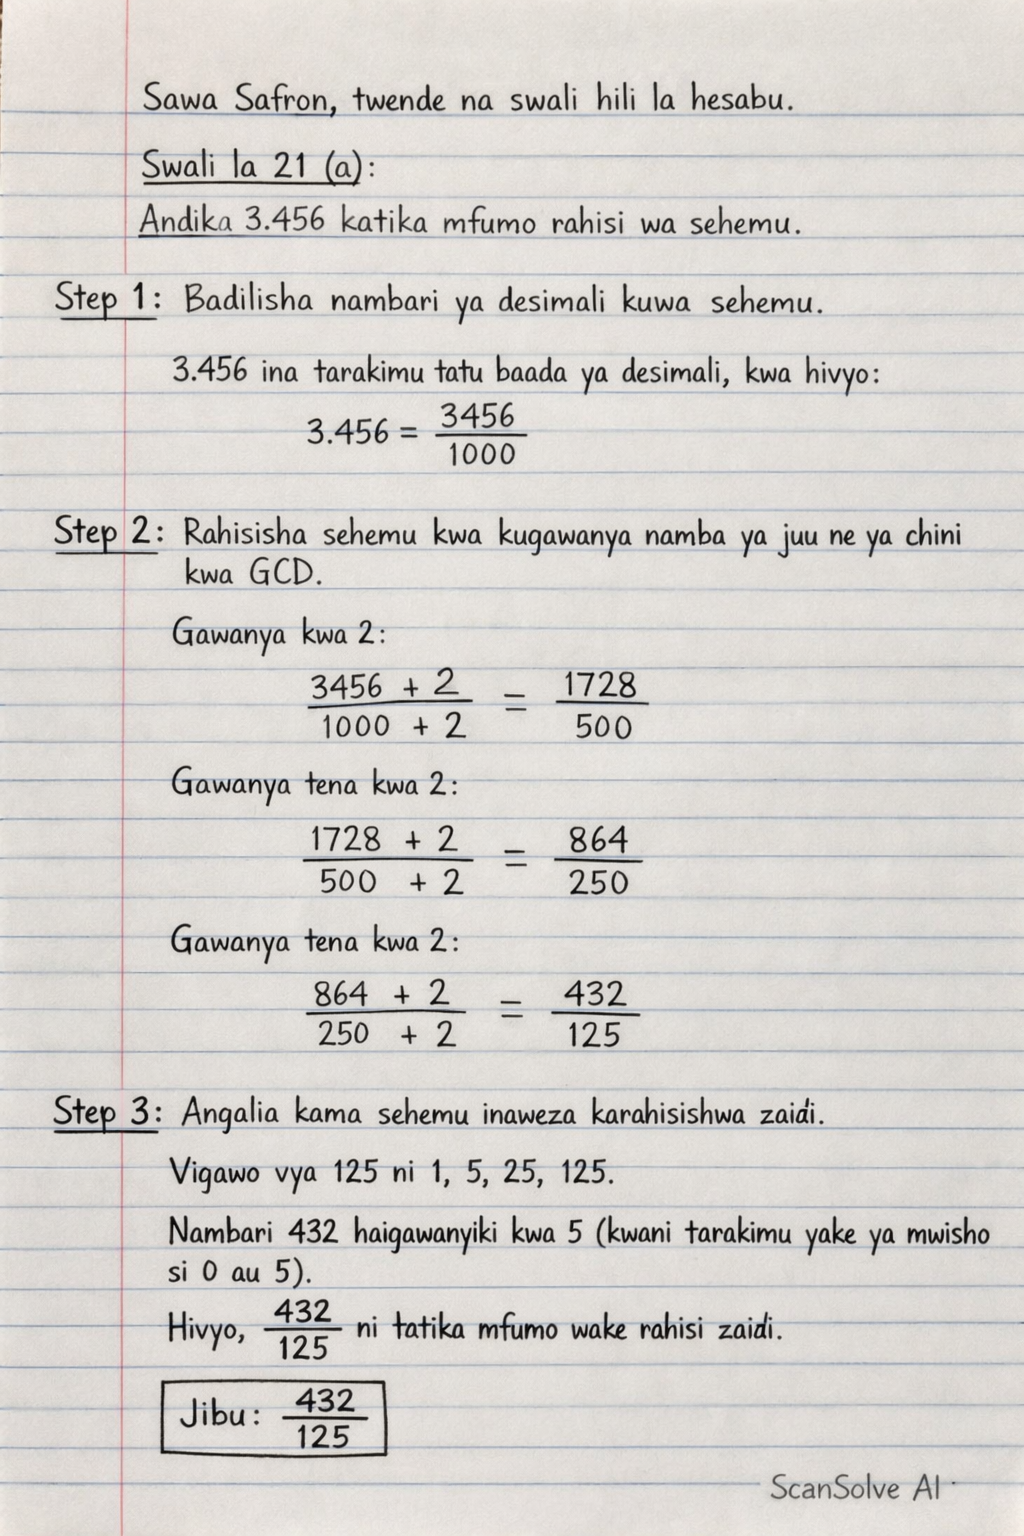 Sawa Safron, twende na swali hili la hesabu.
Swali la 21 (a):
Andika 3.456 katika mfumo rahisi wa sehemu.
Step 1: Badilisha nambari ya desimali kuwa sehemu.
3.456 ina tarakimu tatu baada ya desimali, kwa hivyo:
3.456 = 3456/1000
Step 2: Rahisisha sehemu kwa kugawanya namba ya juu ne ya chini
kwa GCD.
Gawanya kwa 2:
3456 + 2 / 1000 + 2 = 1728/500
Gawanya tena kwa 2:
1728 + 2 / 500 + 2 = 864/250
Gawanya tena kwa 2:
864 + 2 / 250 + 2 = 432/125
Step 3: Angalia kama sehemu inaweza karahisishwa zaidi.
Vigawo vya 125 ni 1, 5, 25, 125.
Nambari 432 haigawanyiki kwa 5 (kwani tarakimu yake ya mwisho
si 0 au 5).
Hivyo, 432/125 ni tatika mfumo wake rahisi zaidi.
Jibu: 432/125
ScanSolve AI